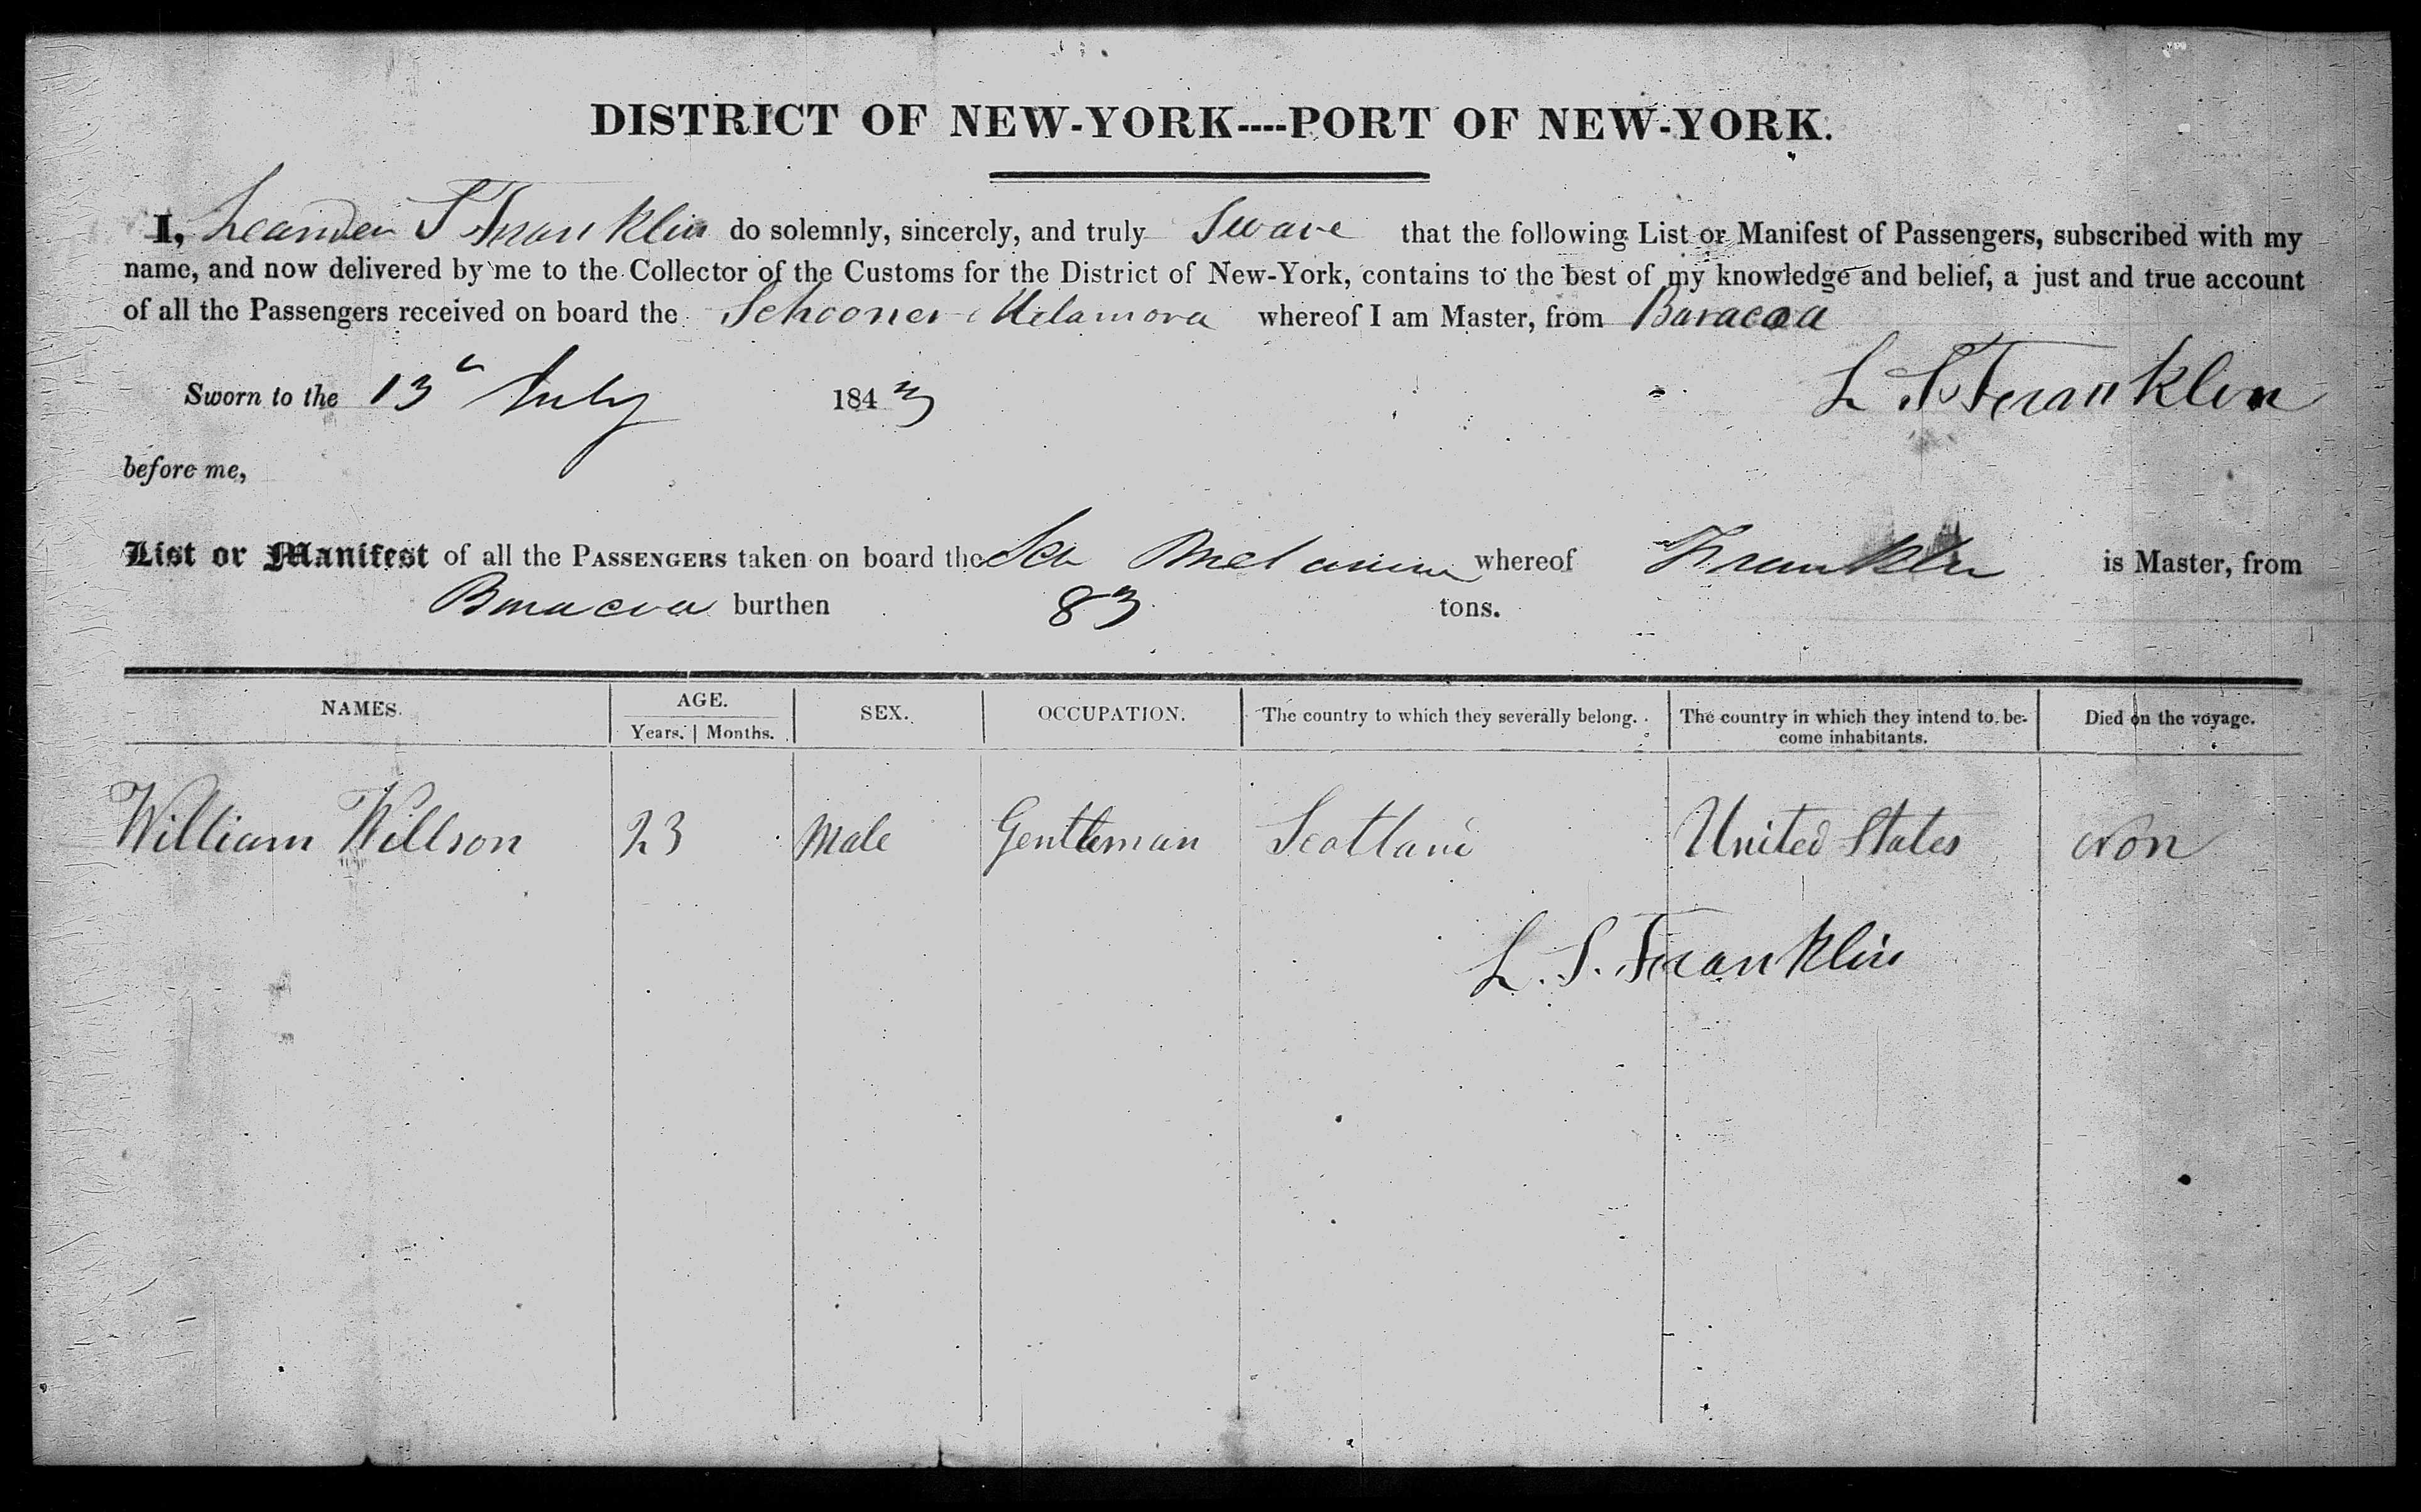 DISTRICT OF NEW-YORK----PORT OF NEW-YORK.
I, Leander S Franklin do solemnly, sincerely, and truly Sware that the following List or Manifest of Passengers, subscribed with my
name, and now delivered by me to the Collector of the Customs for the District of New-York, contains to the best of my knowledge and belief, a just and true account
of all the Passengers received on board the Schooner Metamora whereof I am Master, from Baracoa
Sworn to the 13th July 1843 L S Franklin
before me,
List or Manifest of all the PASSENGERS taken on board the Sch whereof Franklin is Master, from
Baracoa burthen 83 tons.
NAMES. AGE. SEX. OCCUPATION. The country to which they severally belong. The country in which they intend to be- Died on the voyage.
Years. Months. come inhabitants.
William Willson 23 Male Gentleman Scotland United States Non
L. S. Franklin